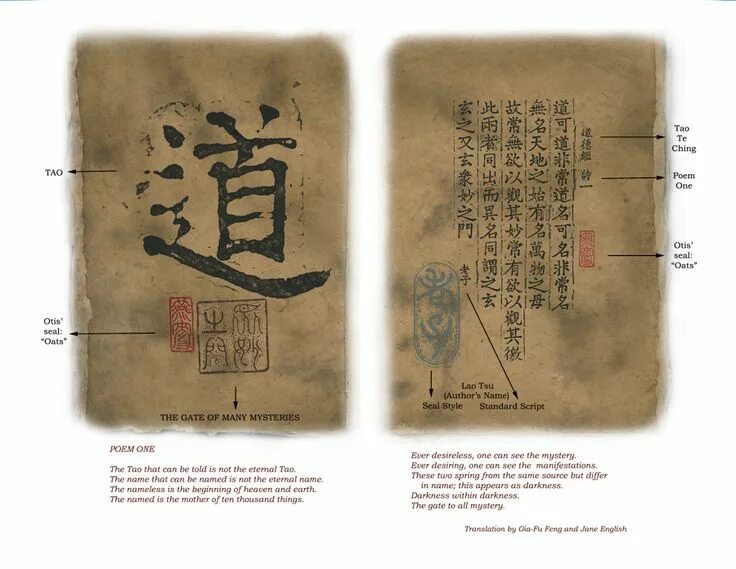 TAO
道
Otis'
seal:
"Oats"
燕麥
衆妙
之門
THE GATE OF MANY MYSTERIES
道德經 詩一
道可道非常道名可名非常名
無名天地之始有名萬物之母
故常無欲以觀其妙常有欲以觀其徼
此兩者同出而異名同謂之玄
玄之又玄衆妙之門
老子
老子
燕麥
Tao
Te
Ching
Poem
One
Otis'
seal:
"Oats"
Lao Tsu
(Author's Name)
Seal Style Standard Script
POEM ONE
The Tao that can be told is not the eternal Tao.
The name that can be named is not the eternal name.
The nameless is the beginning of heaven and earth.
The named is the mother of ten thousand things.
Ever desireless, one can see the mystery.
Ever desiring, one can see the manifestations.
These two spring from the same source but differ
in name; this appears as darkness.
Darkness within darkness.
The gate to all mystery.
Translation by Gia-Fu Feng and Jane English